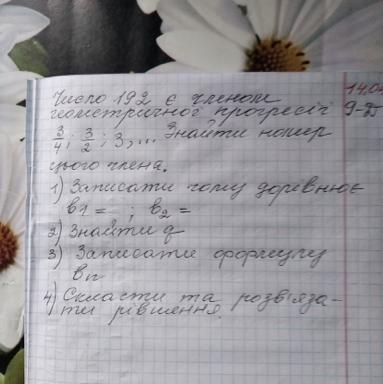 Число 192 є членом
геометричної прогресії
3/4; 3/2; 3,... Знайти номер
цього члена.
1) Записати чому дорівнює
b1 = ; b2 =
2) Знайти q
3) Записати формулу
bn
4) Скласти та розв'яза-
ти рівняння.
14.04
9-Д